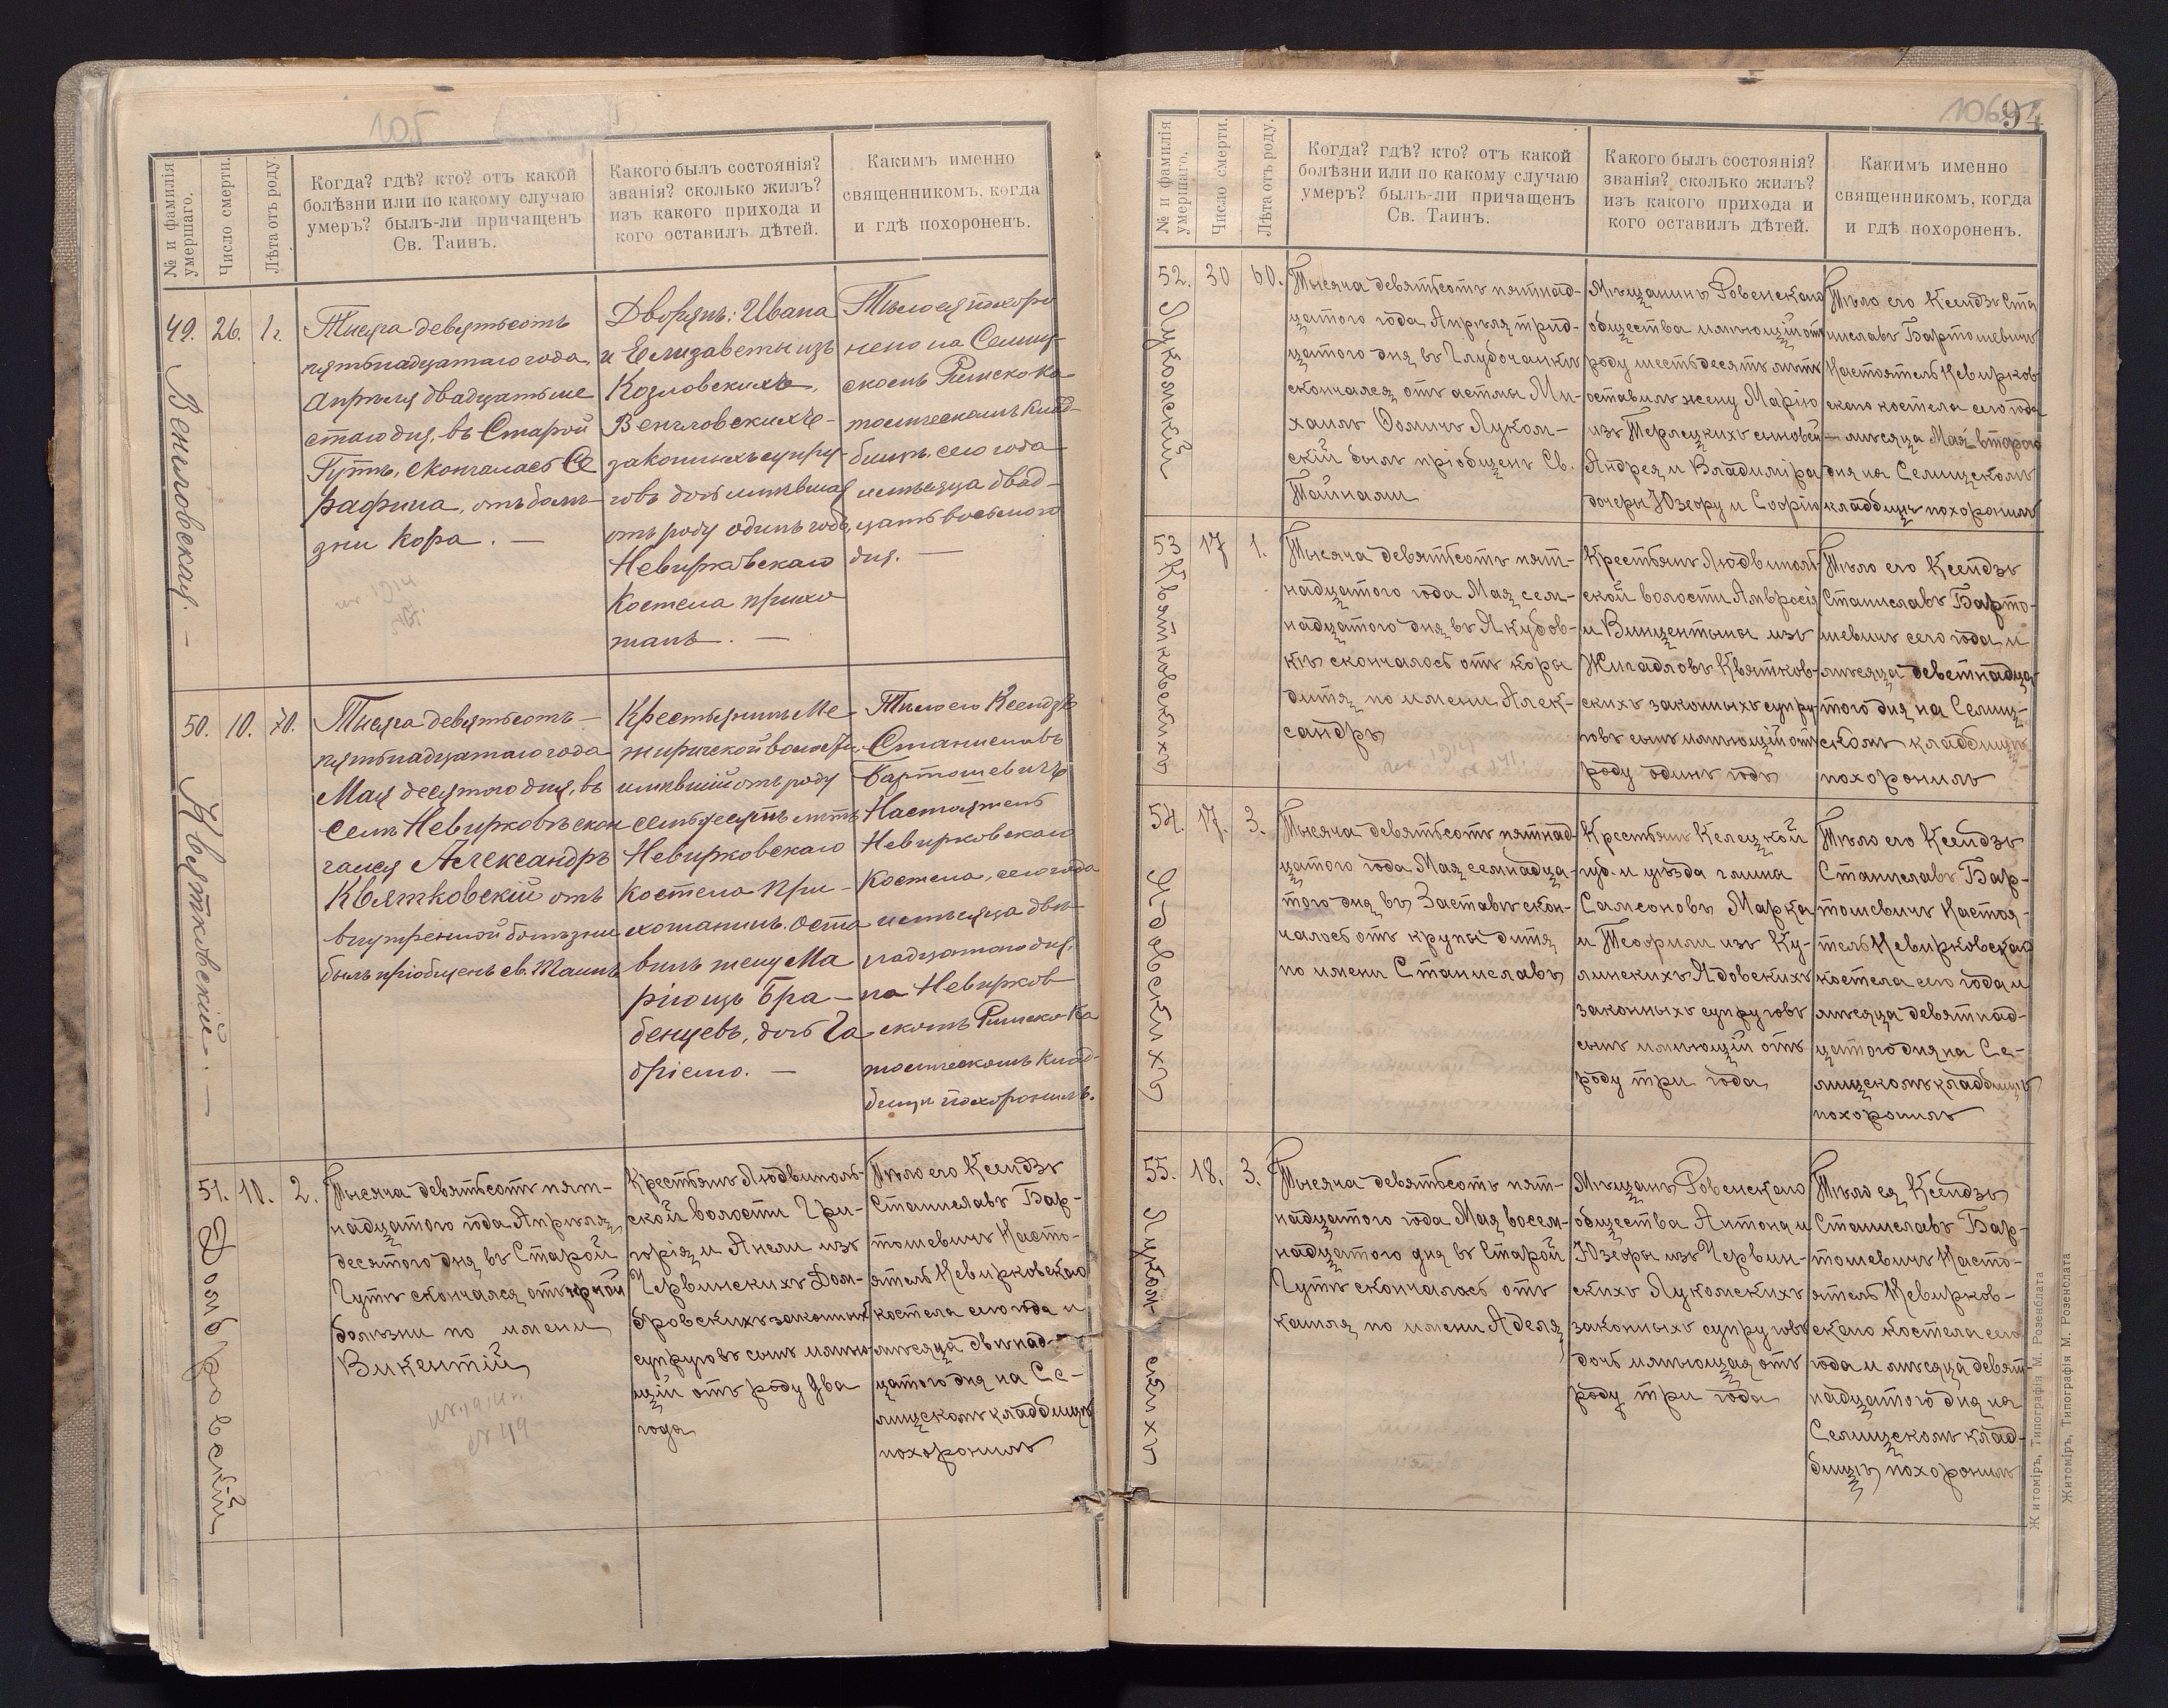 105
№ и фамилія умершаго.
Число смерти.
Лѣта отъ роду.
Когда? гдѣ? кто? отъ какой
болѣзни или по какому случаю
умеръ? былъ-ли причащенъ
Св. Таинъ.
Какого былъ состоянія?
званія? сколько жилъ?
изъ какого прихода и
кого оставилъ дѣтей.
Каким именно
священникомъ, когда
и гдѣ похороненъ.
49. 26. 1 г.
Венгловская. —
Тысяча девятьсотъ
пятьнадцатаго года,
Апрѣля двадцатьше
стаго дня, въ Старой
Гутѣ, скончалась Се
рафина, отъ болѣ-
зни кора. —
Дворянъ: Ивана
и Елизаветы изъ
Козловскихъ,
Венгловскихъ —
законныхъ супру-
говъ дочь имѣвшая
отъ роду одинъ годъ,
Невирковскаго
Костела прихо
жанъ. —
Тѣло ея похоро
нено на Селищ-
скомъ Римско ка
толическомъ клад-
бищѣ, сего года
и мѣсяца двад-
цать восьмого
дня. —
50. 10. 70.
Квятковскій. —
Тысяча девятьсотъ —
пятьнадцатаго года
Мая десятого дня, въ
селѣ Невирковѣ скон
чался Александръ
Квятковскій отъ
внутренной болѣзни
былъ пріобщенъ св. Таинъ
Крестьянинъ Ме
жиричской волости,
имѣвшій отъ роду
семьдесятъ лѣтъ
Невирковскаго
Костела при-
хожанинъ. Оста
вилъ жену Ма
рію изъ Гра-
бенцевъ, дочь Га
брiелю. —
Тѣло его Ксендзъ
Станиславъ
Бартошевичъ
Настоятель
Невирковскаго
Костела, сего года
и мѣсяца двѣ-
надцатого дня,
на Невирков
скомъ Римско-Ка
толическомъ клад-
бищѣ похоронилъ.
51. 10. 2.
Домбровскій
Тысяча девятьсотъ пят-
надцатого года Апрѣля
десятого дня въ Старой
Гутѣ скончался отъ
болѣзни по имени
Викентій
Крестьянъ Людвиполь-
ской волости Гри-
горія и Анели изъ
Червинскихъ Дом-
бровскихъ законныхъ
супруговъ сынъ имѣю
щій отъ роду два
года
Тѣло его Ксендзъ
Станиславъ Бар-
тошевичъ Насто-
ятель Невирковскаго
костела сего года и
мѣсяца двѣнад-
цатого дня на Се-
лищскомъ кладбищѣ
похоронилъ
106
94
№ и фамилія умершаго.
Число смерти.
Лѣта отъ роду.
Когда? гдѣ? кто? отъ какой
болѣзни или по какому случаю
умеръ? былъ-ли причащенъ
Св. Таинъ.
Какого былъ состоянія?
званія? сколько жилъ?
изъ какого прихода и
кого оставилъ дѣтей.
Каким именно
священникомъ, когда
и гдѣ похороненъ.
52. 30 60.
Лукомскій
Тысяча девятьсотъ пятнад-
цатого года Апрѣля трид-
цатого дня въ Глубочанкѣ
скончался отъ астмы Ми-
хаилъ Ѳомичъ Луком-
скій былъ пріобщенъ Св.
Тайнами
Мѣщанинъ Ровенскаго
общества имѣющій отъ
роду шестьдесятъ лѣтъ
оставилъ жену Марію
изъ Терлецкихъ сыновей
Андрея и Владиміра
дочеры Юзефу и Софію
Тѣло его Ксендзъ Ста
ниславъ Бартошевичъ
Настоятель Невирков
скаго костела сего года
— мѣсяца Мая второго
дня на Селищскомъ
кладбищѣ похоронилъ
53 17 1.
Квятковскихъ
Тысяча девятьсотъ пят-
надцатого года Мая сем-
надцатого дня въ Якубов-
кѣ скончалось отъ коры
дитя по имени Алек-
сандръ
Крестьянъ Людвиполь
ской волости Амвросія
и Винцентыны изъ
Жигадловъ Квятков-
скихъ законныхъ супру
говъ сынъ имѣющій отъ
роду одинъ годъ
Тѣло его Ксендзъ
Станиславъ Барто-
шевичъ сего года и
мѣсяца деветнадца-
того дня на Селищ-
скомъ кладбищѣ
похоронилъ
54. 17. 3.
Ядовскихъ
Тысяча девятьсотъ пятнад-
цатого года Мая семнадца-
того дня въ Заставѣ скон-
чалось отъ крупы дитя
по имени Станиславъ
Крестьянъ Келецкой
губ. и уѣзда гмина
Самсоновъ Марка
и Теофили изъ Ку-
линскихъ Ядовскихъ
законныхъ супруговъ
сынъ имѣющій отъ
роду три года
Тѣло его Ксендзъ
Станиславъ Бар-
тошевичъ Настоя-
тель Невирковскаго
костела сего года и
мѣсяца девятнад-
цатого дня на Се-
лищскомъ кладбищѣ
похоронилъ
55. 18. 3.
Лукомскихъ
Тысяча девятьсотъ пят-
надцатого года Мая восем-
надцатого дня въ Старой
Гутѣ скончалась отъ
кашля по имени Аделя
Мѣщанъ Ровенскаго
общества Антона и
Юзефы изъ Червин-
скихъ Лукомскихъ
законныхъ супруговъ
дочь имѣющая отъ
роду три года
Тѣло ея Ксендзъ
Станиславъ Бар-
тошевичъ Насто-
ятель Невирков-
скаго костела сего
года и мѣсяца девят-
надцатого дня на
Селищскомъ клад-
бищѣ похоронилъ
Житоміръ, Типографія М. Розенблата
Житоміръ, Типографія М. Розенблата